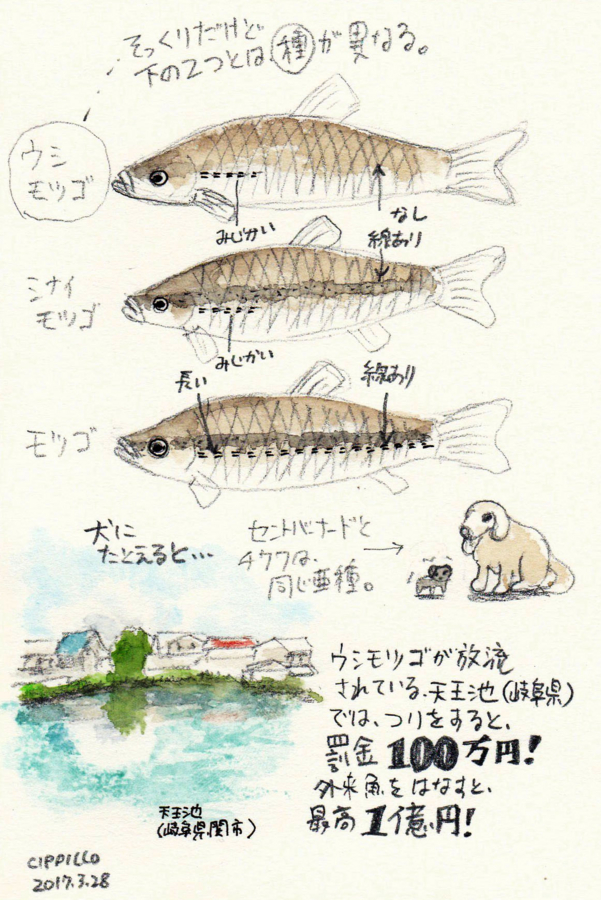 そっくりだけど
下の2つとは種が異なる。
ウシ
モツゴ
みじかい
なし
線あり
ミナイ
モツゴ
みじかい
長い
線あり
モツゴ
犬に
たとえると…
セントバーナードと
チワワは、
同じ亜種。
ウシモツゴが放流
されている、天王池(岐阜県)
では、つりをすると、
罰金100万円!
外来魚をはなすと、
最高1億円!
天王池
(岐阜県関市)
CIPPILLO
2017.3.28